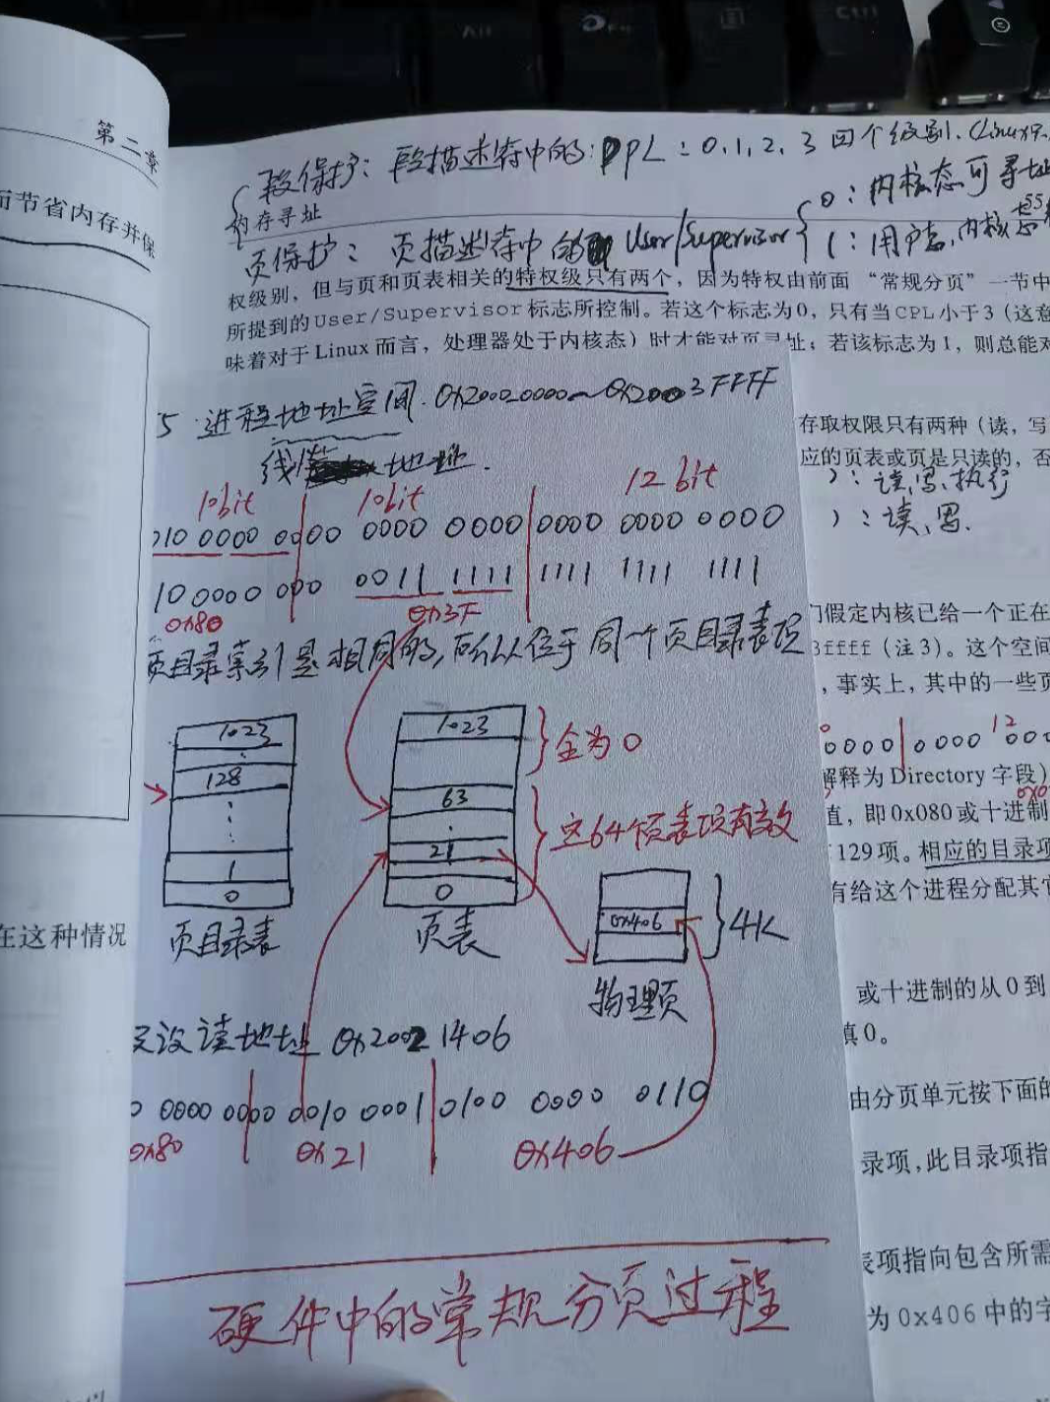 第二章
而节省内存并保
在这种情况
段保护：段描述符中的：DPL：0,1,2,3 四个级别.(Linux
内存寻址
0：内核态可寻址
页保护：页描述符中的 User/Supervisor
1：用户态,内核态
权级别，但与页和页表相关的特权级只有两个，因为特权由前面“常规分页”一节中
所提到的User/Supervisor标志所控制。若这个标志为0，只有当CPL小于3（这意
味着对于Linux而言，处理器处于内核态）时才能对页寻址；若该标志为1，则总能对
5 进程地址空间. 0x20020000~0x2003FFFF
存取权限只有两种（读，写
应的页表或页是只读的，否
线性 地址.
)：读,写,执行
)：读,写.
10bit 10bit 12bit
010 0000 0000 0000 0000 0000 0000 0000
10 0000 000 0011 1111 1111 1111 1111
0x80 0x3F
页目录索引是相同的,所以位于同一个页目录表项
们假定内核已给一个正在
3ffff（注3）。这个空间
，事实上，其中的一些页
0000 0000 12 000
解释为Directory字段）
值，即0x080或十进制
129项。相应的目录项
有给这个进程分配其它
1023
128
1
0
页目录表
1023
63
21
0
页表
全为0
这64个页表项有效
0x406
4K
物理页
或十进制的从0到
真0。
假设读地址 0x20021406
0 0000 0000 0010 0001 0100 0000 0110
0x80 0x21 0x406
由分页单元按下面的
录项，此目录项指
表项指向包含所需
为0x406中的字
硬件中的常规分页过程